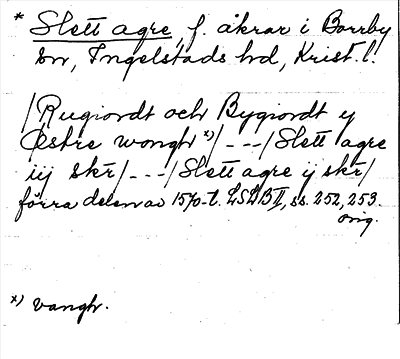 * Slett agre, f. åkrar i Borrby
sn, Ingelstads hd, Krist. l.
/Rugiordt och Bygiordt y
Østre wongh x)/---/Slett agre
iij skr/---/Slett agre ij skr/
förra delen av 1570-t. LSLB II, ss. 252, 253.
orig.
x) vangh.